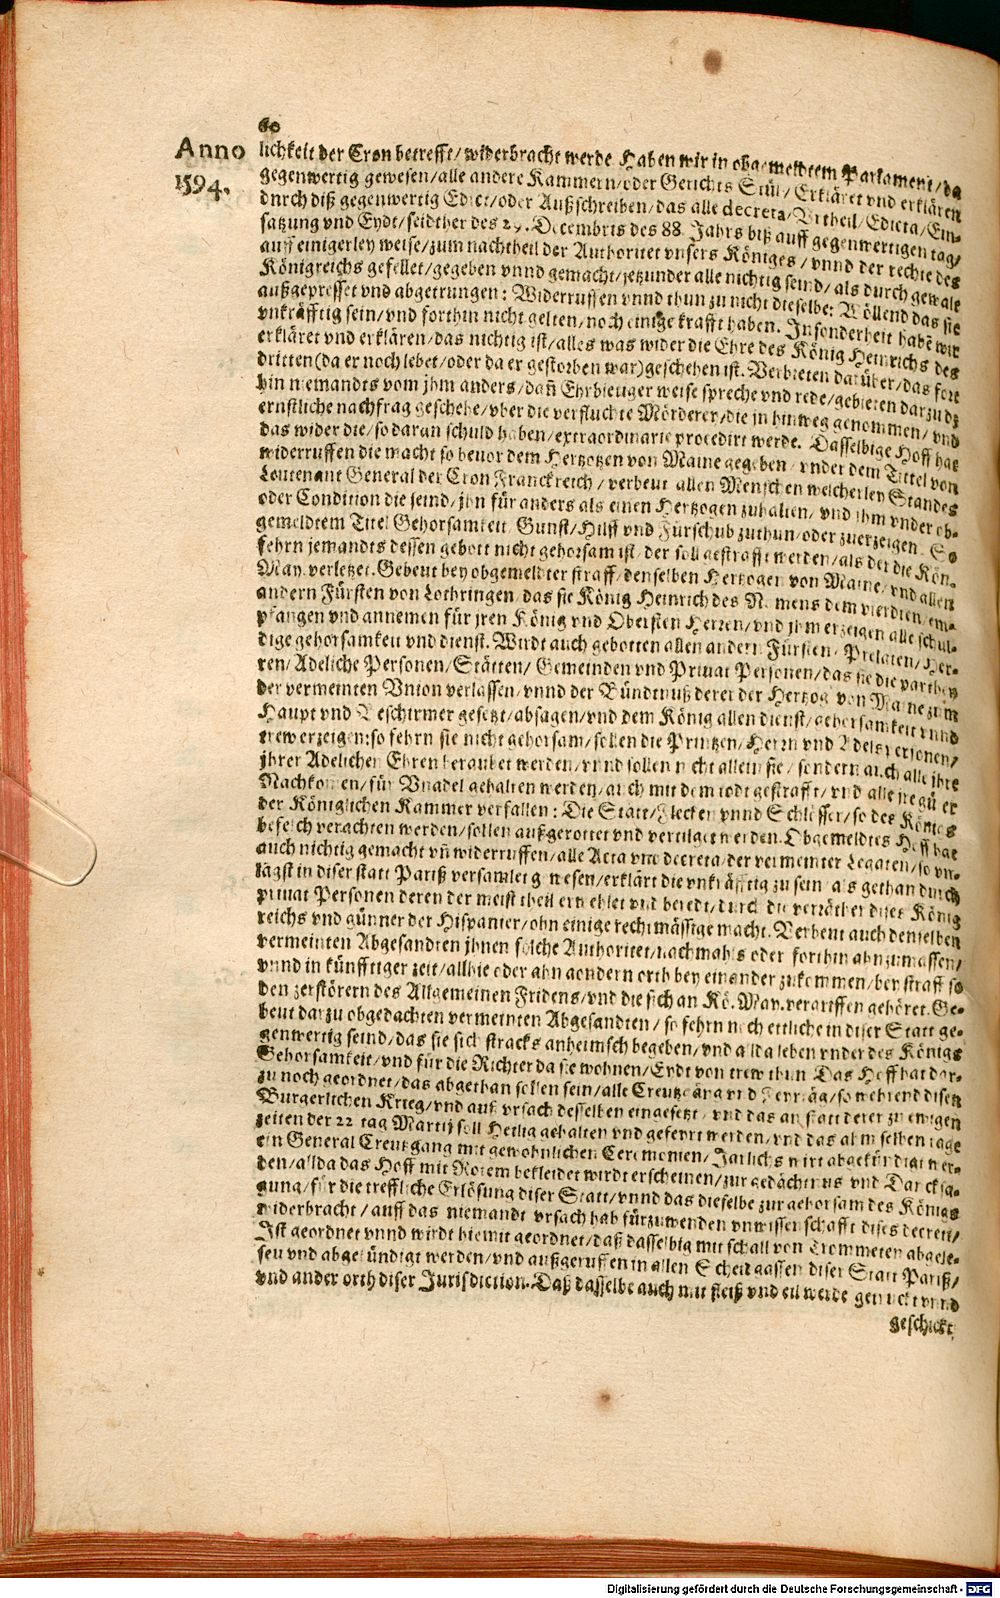 60
Anno
1594.
lichkeit der Cron betrefft/ widerbracht werde Haben wir in obgemeldtem Parlament/ da
gegenwertig gewesen/ alle andere Kammern/ oder Gerichts Stül/ Erkläret vnd erklären
durch diß gegenwertig Edict/ oder Außschreiben/ das alle decreta/ Vrtheil/ Edicta/ Ein-
satzung vnd Eydt/ seidther des 29. Decembris des 88. Jahrs biß auff gegenwertigen tag/
auff einigerley weise/ zum nachtheil der Authoritet vnsers Königes/ vnnd der rechte des
Königreichs gefellet/ gegeben vnnd gemacht/ jetzunder alle nichtig seind/ als durch gewalt
außgepresset vnd abgetrungen: Widerruffen vnnd thun zu nicht dieselbe: Wöllend das sie
vnkräfftig sein/ vnd forthin nicht gelten/ noch einige krafft haben. Jnsonderheit habẽ wir
erkläret vnd erklären/ das nichtig ist/ alles was wider die Ehre des König Heinrichs des
dritten (da er noch lebet/ oder da er gestorben war) geschehen ist. Verbieten darüber/ das fort
hin niemandts vom jhm anders/ dañ Ehrbietiger weise spreche vnd rede/ gebieten darzu dz
ernstliche nachfrag geschehe/ vber die verfluchte Mörderer/ die jn hinweg genommen/ vnd
das wider die/ so daran schuld haben/ extraordinarie procedirt werde. Dasselbige Hoff hat
widerruffen die macht so beuor dem Hertzogen von Maine gegeben/ vnder dem Tittel von
Leutenant General der Cron Franckreich/ verbeut allen Menschen welcherley Standes
oder Condition die seind/ jhn für anders als einen Hertzogen zuhalten/ vnd jhm vnder ob-
gemeldtem Titel Gehorsamkeit Gunst/ Hülff vnd Fürschub zuthun/ oder zuerzeigen. So
fehrn jemandts dessen gebott nicht gehorsam ist/ der soll gestrafft werden/ als der die Kön.
May. verletzet. Gebeut bey obgemeldter straff/ denselben Hertzogen von Maine/ vnd allen
andern Fürsten von Lothringen/ das sie König Heinrich des Namens dem vierdten em-
pfangen vnd annemen für jren König vnd Obersten Herren/ vnd jhm erzeigen alle schul-
dige gehorsamkeit vnd dienst. Wirdt auch gebotten allen andern Fürsten/ Prelaten/ Her-
ren/ Adeliche Personen/ Stätten/ Gemeinden vnd Priuat Personen/ das sie die parthey
der vermeinten Vnion verlassen/ vnnd der Bündtnuß derer der Hertzog von Maine zum
Haupt vnd Beschirmer gesetzt/ absagen/ vnd dem König allen dienst/ gehorsamkeit vnnd
trew erzeigen: so fehrn sie nicht gehorsam/ sollen die Printzen/ Herrn vnd Adelspersonen/
jhrer Adelichen Ehren beraubet werden/ vnnd sollen nicht allein sie/ sondern auch alle jhre
Nachkomen/ für Vnadel gehalten werden/ auch mit dem todt gestrafft/ vnd alle jre gũter
der Königlichen Kammer verfallen: Die Statt/ Flecken vnnd Schlösser/ so des Königs
befelch verachten werden/ sollen außgerottet vnd vertilget werden. Obgemeldtes Hoff hat
auch nichtig gemacht vñ widerruffen/ alle Acta vnd decreta/ der vermeinter Legaten/ so vn-
lägst in diser statt Pariß versamlet gewesen/ erklärt die vnkräfftig zu sein/ als gethan durch
priuat Personen deren der meist theil erwehlet vnd beredt/ durch die verräther dises König
reichs vnd günner der Hispanier/ ohn einige rechtmässige macht. Verbeut auch denselben
vermeinten Abgesandten jhnen solche Authoritet/ nachmahls oder forthin ahnzumassen/
vnnd in künfftiger zeit/ allhie oder ahn aondern orth bey einander zukommen/ bey straff so
den zerstörern des Allgemeinen Fridens/ vnd die sich an Kö. May. vergriffen gehöret. Ge-
beut darzu obgedachten vermeinten Abgesandten/ so fehrn noch ettliche in diser Statt ge-
genwertig seind/ das sie sich stracks anheimsch begeben/ vnd allda leben vnder des Königs
Gehorsamkeit/ vnd für die Richter da sie wohnen/ Eydt von trew thun. Das Hoff hat dar-
zu noch geordnet/ das abgethan sollen sein/ alle Creutzgäng vnd Feyrtäg/ so wehrend disen
Burgerlichen Krieg/ vnd auß vrsach desselben eingesetzt/ vnd das an statt derer zu ewigen
zeiten der 22 tag Martij soll Heilig gehalten vnd gefeyrt werden/ vnd das ahm selben tage
ein General Creutzgang mit gewohnlichen Ceremonien/ Järlichs wirt abgekündigt wer-
den/ allda das Hoff mit Rotem bekleidet wirdt erscheinen/ zur gedächtnus vnd Dancksa-
gung/ für die treffliche Erlösung diser Statt/ vnnd das dieselbe zur gehorsam des Königs
widerbracht/ auff das niemandt vrsach hab fürzuwenden vnwissenschafft dises decrett/
Jst geordnet vnnd wirdt hiemit geordnet/ daß dasselbig mit schall von Trommeten abgele-
sen vnd abgekündigt werden/ vnd außgeruffen in allen Scheitgassen diser Statt Pariß/
vnd ander orth diser Jurisdiction. Daß dasselbe auch mit fleiß vnd eil werde getruckt vnnd
geschickt
Digitalisierung gefördert durch die Deutsche Forschungsgemeinschaft - DFG